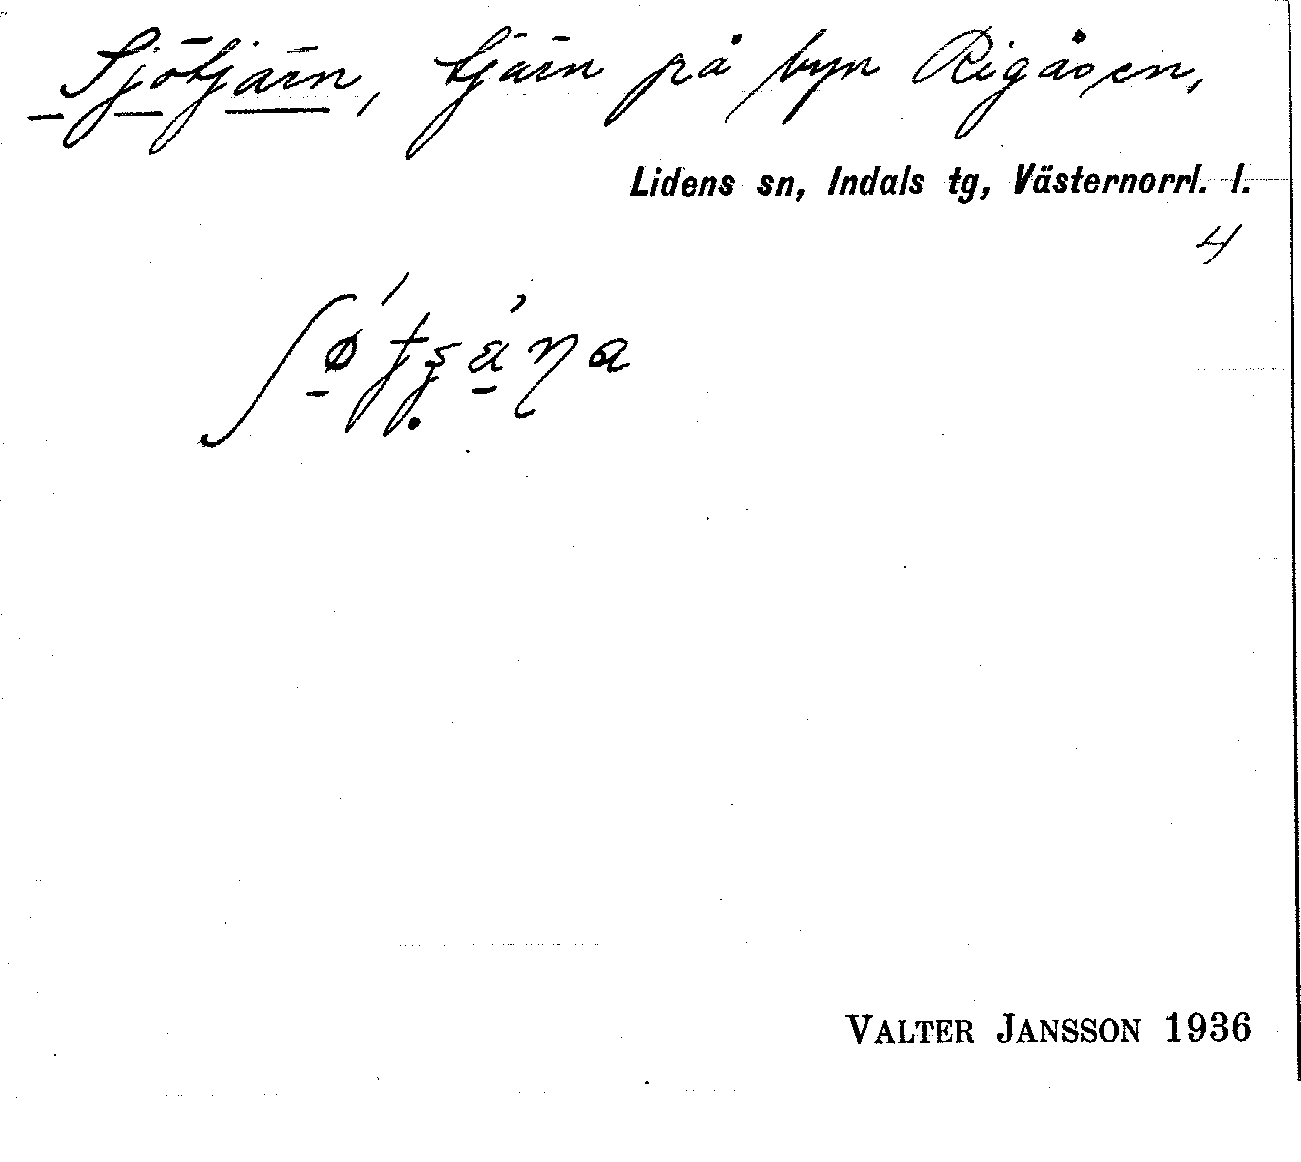 Sjötjärn, tjärn på byn Rigåsen,
Lidens sn, Indals tg, Västernorrl. l.
4
VALTER JANSSON 1936